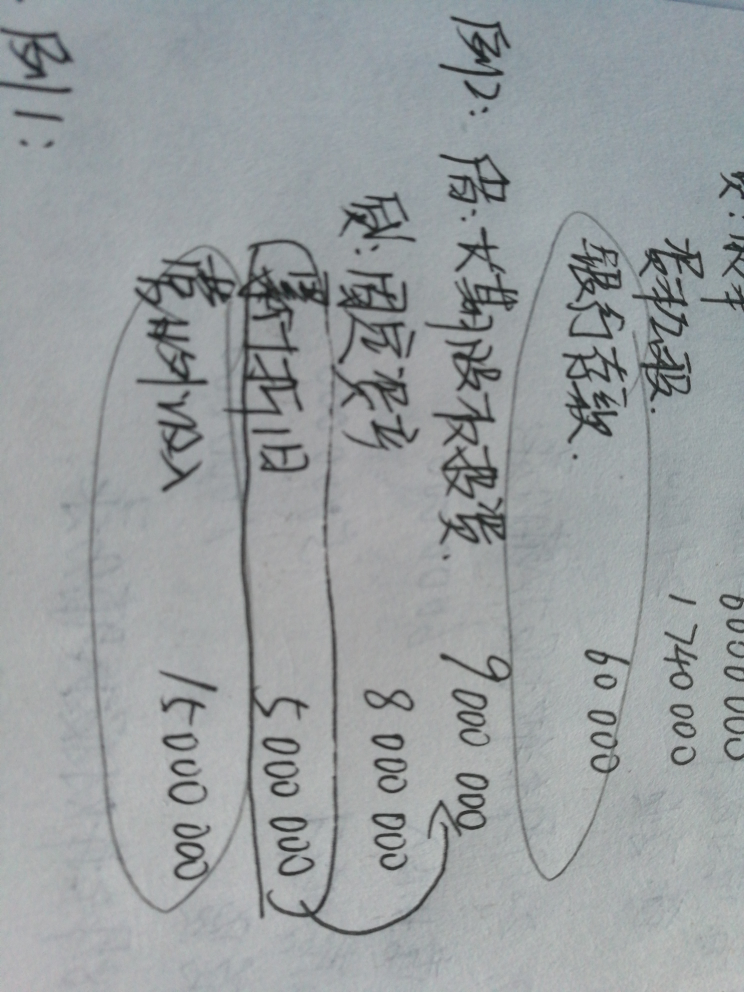 贷:股本 6000 000
资本公积. 1 740 000
银行存款. 60 000
例2: 借:长期股权投资. 9 000 000
贷:固定资产 8 000 000
累计折旧 5 000 000
营业外收入 15 000 000
例1: